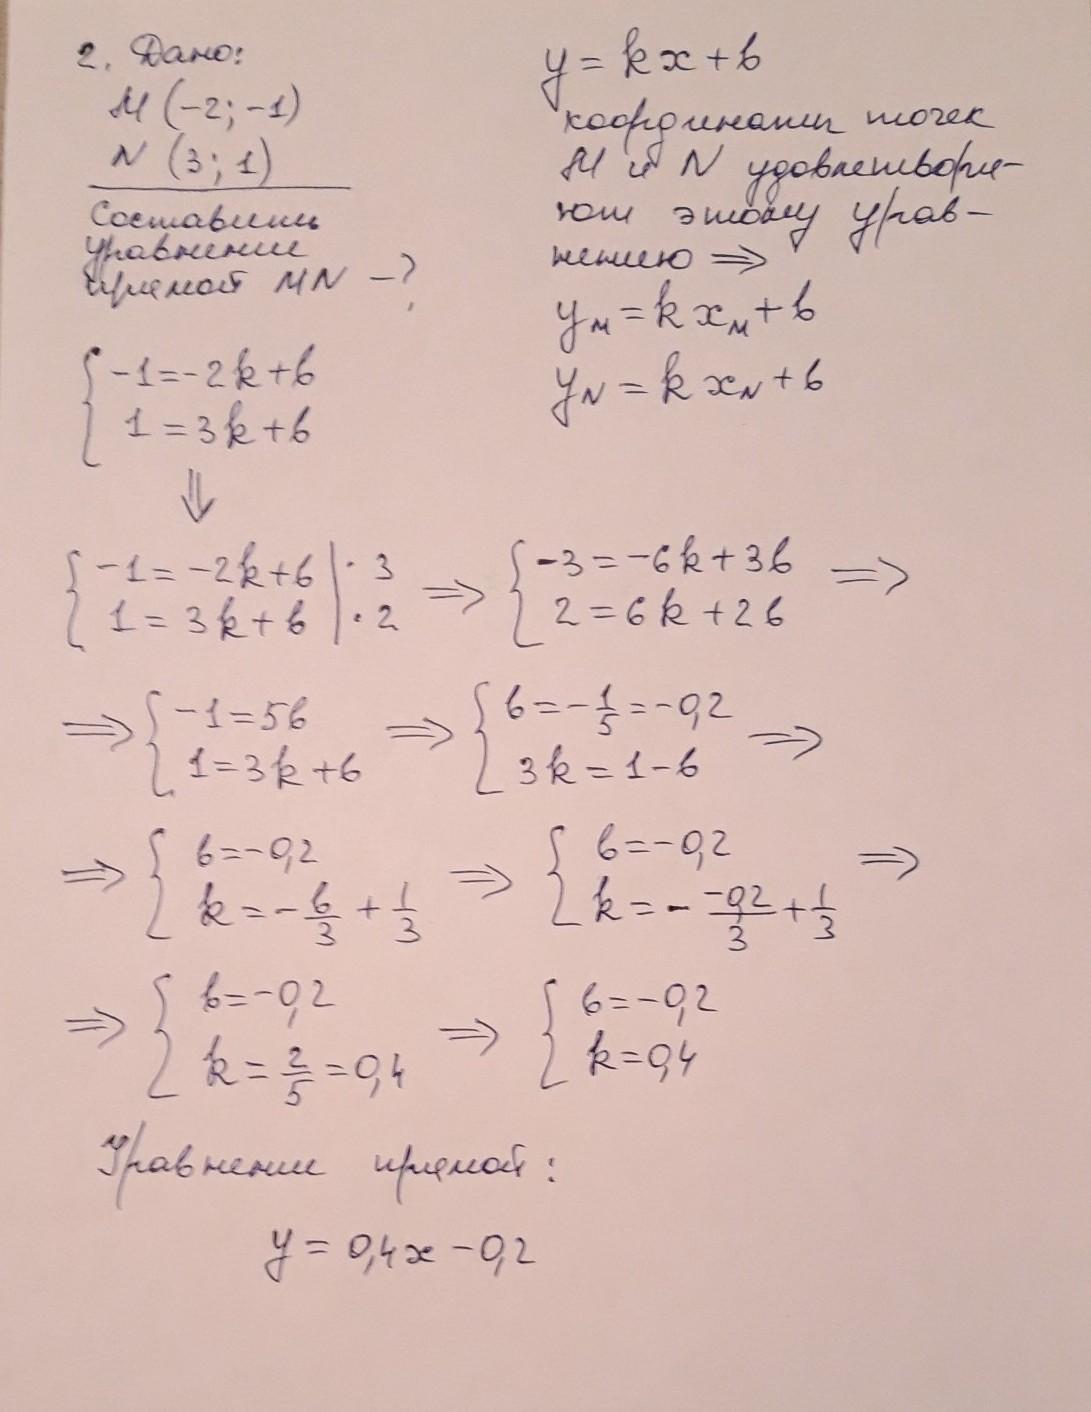 2. Дано:
M (-2; -1)
N (3; 1)
Составить
уравнение
прямой MN - ?
y = kx + b
координаты точек
M и N удовлетворя-
ют этому урав-
нению ⇒
yM = k xM + b
yN = k xN + b
{ -1 = -2k + b
1 = 3k + b
⇓
{ -1 = -2k + b | · 3 ⇒ { -3 = -6k + 3b ⇒
1 = 3k + b | · 2 2 = 6k + 2b
⇒ { -1 = 5b ⇒ { b = -1/5 = -0,2 ⇒
1 = 3k + b 3k = 1 - b
⇒ { b = -0,2 ⇒ { b = -0,2 ⇒
k = -b/3 + 1/3 k = - -0,2/3 + 1/3
⇒ { b = -0,2 ⇒ { b = -0,2
k = 2/5 = 0,4 k = 0,4
Уравнение прямой:
y = 0,4x - 0,2